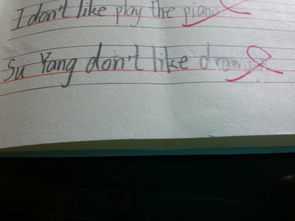 I don't like play the piano
Su Yang don't like